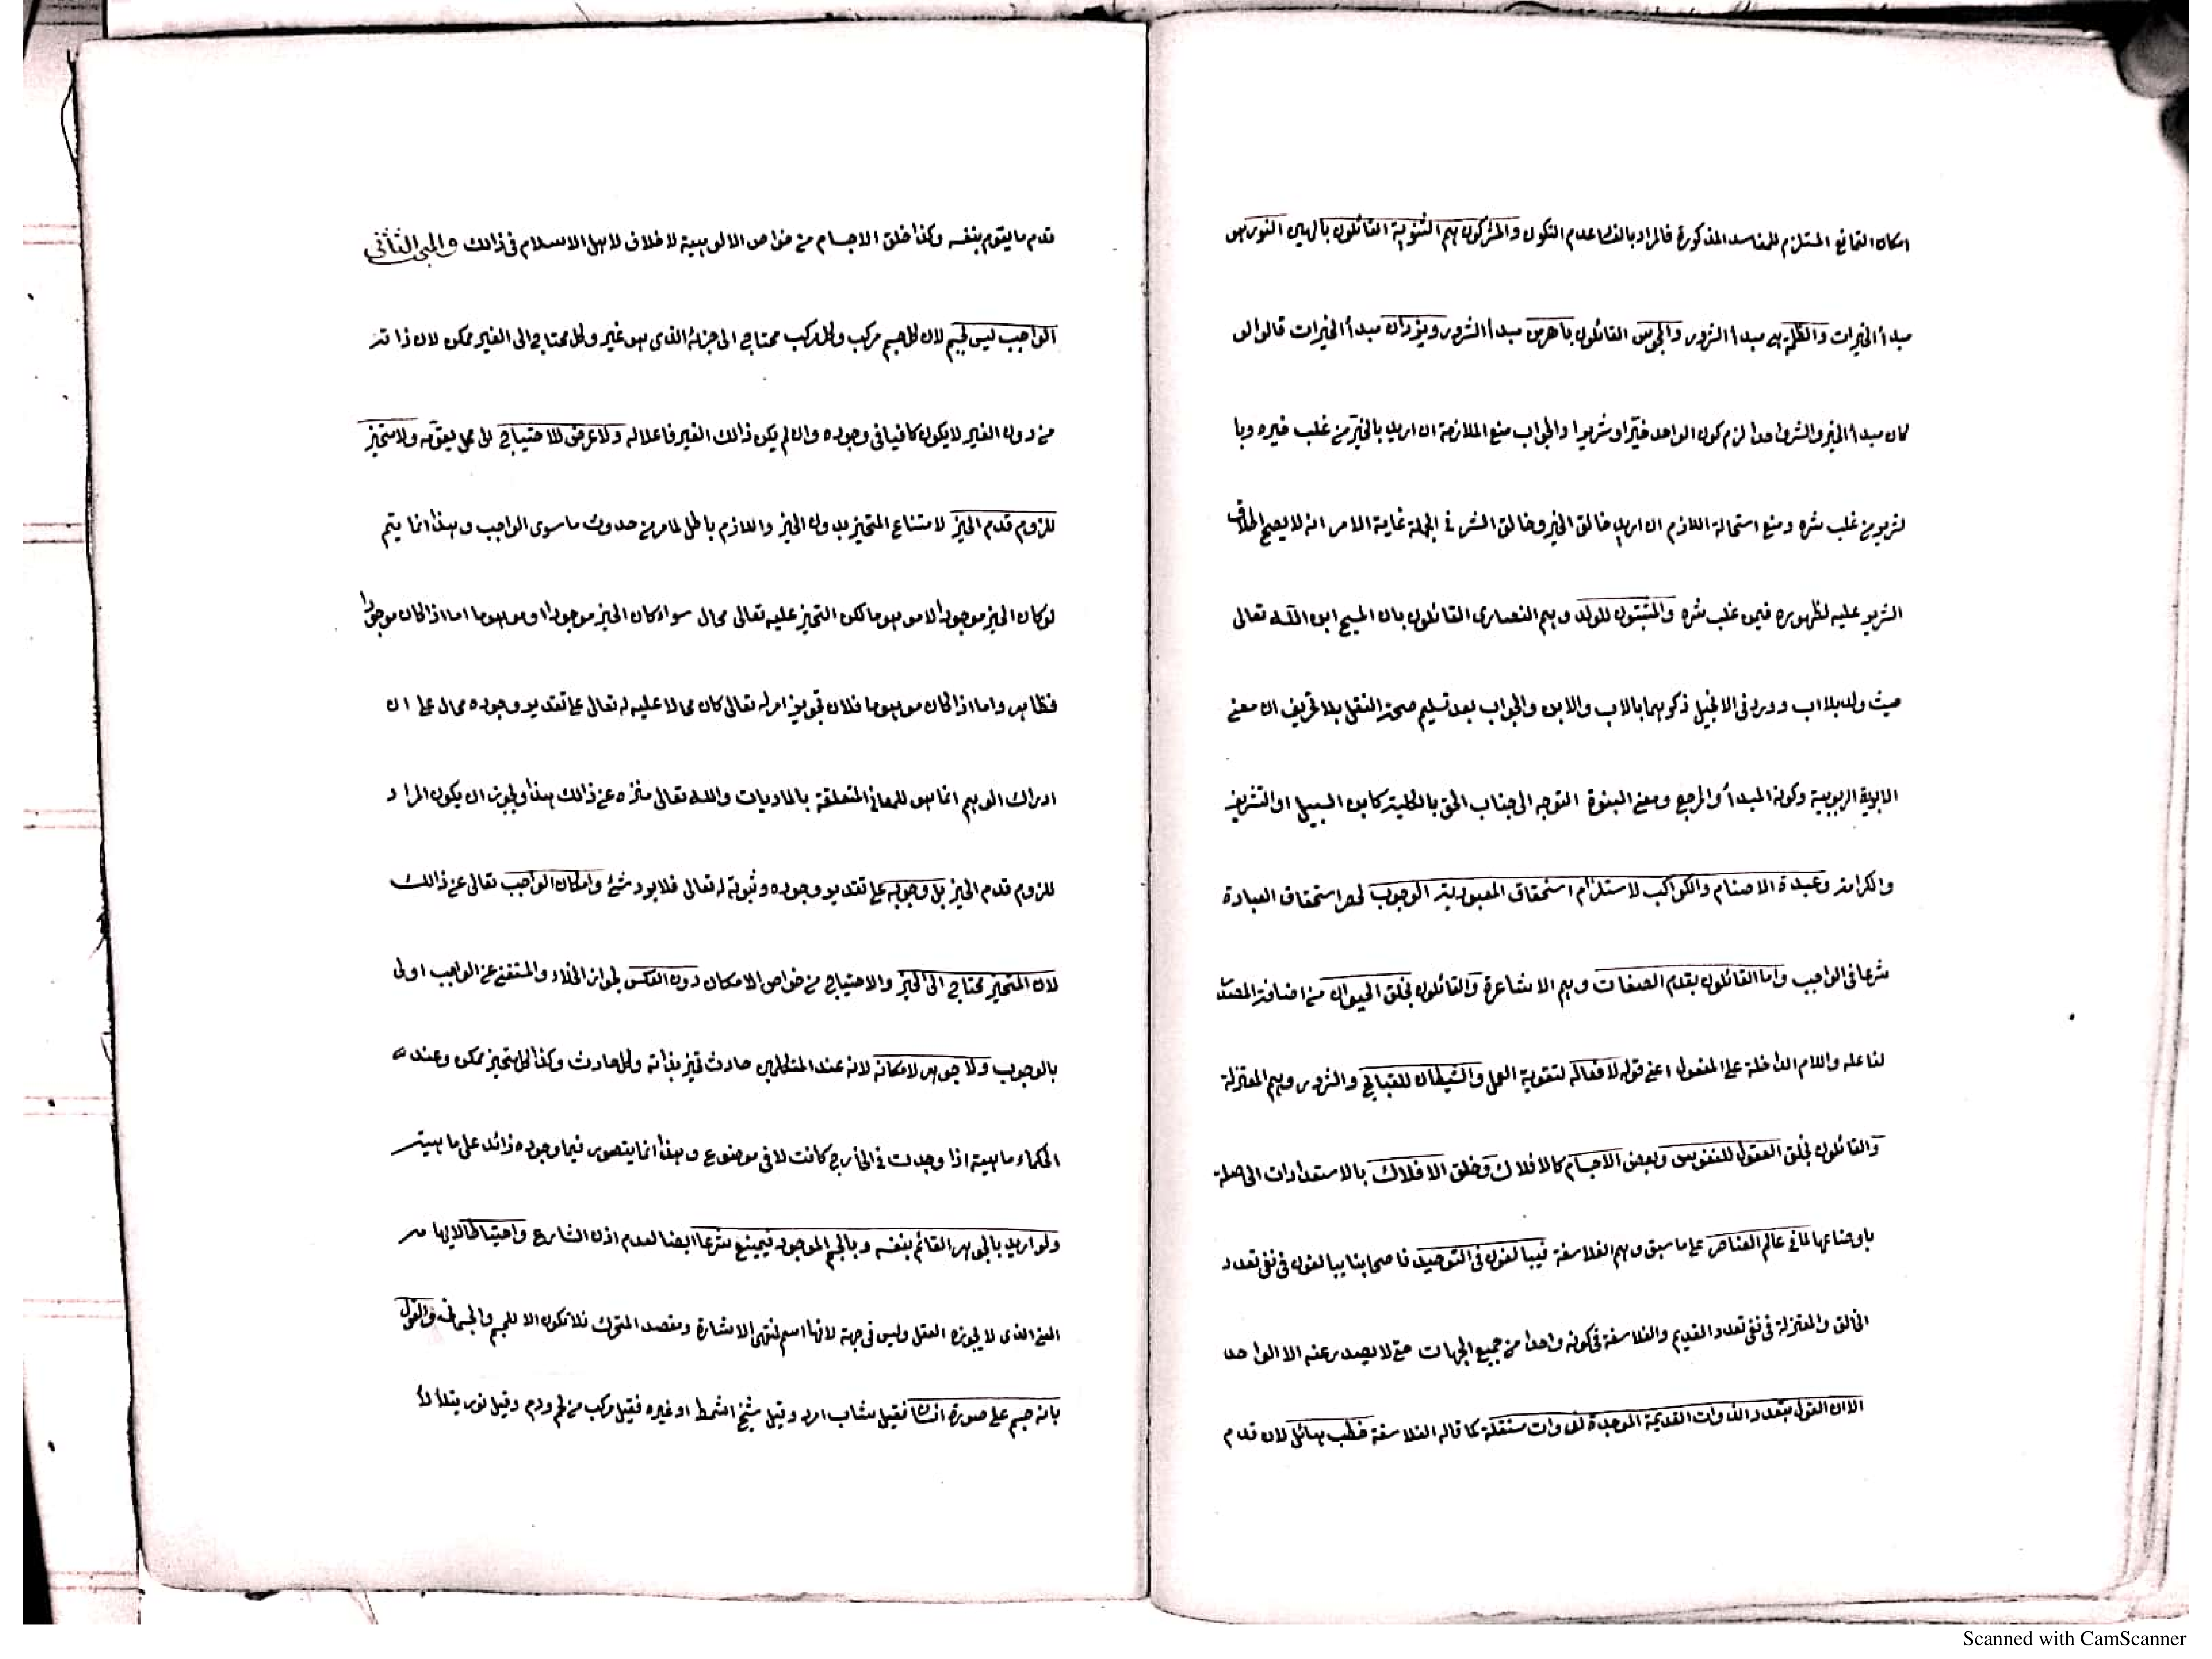 امكان التمانع المستلزم للمفاسد المذكورة فالمراد بالفساد عدم التكون والمشركون هم الثنوية القائلون بالهين النور هو
مبدأ الخيرات والظلمة هي مبدأ الشرور والمجوس القائلون باهرمن مبدأ الشرور ويزدان مبدأ الخيرات قالوا لو
كان مبدأ الخير والشر واحدا لزم كون الواحد خيرا وشريرا والجواب منع الملازمة ان اريد بالخير من غلب خيره وبا
لشرير من غلب شره ومنع استحالة اللازم ان اريد خالق الخير وخالق الشر في الجملة غاية الامر انه لا يصح اطلاق
الشرير عليه لظهوره فيمن غلب شره والمثبتون للولد وهم النصارى القائلون بان المسيح ابن الله تعالى
حيث ولد بلا اب وورد في الانجيل ذكرهما بالاب والابن والجواب بعد تسليم صحة النقل بلا تحريف ان معنى
الابوية الربوبية وكونه المبدأ والمرجع ومعنى البنوة التوجه الى جناب الحق بالكلية كابن السبيل او التشريف
والكرامة وعبدة الاصنام والكواكب لاستلزام استحقاق المعبودية الوجوب لحصر استحقاق العبادة
شرعا في الواجب واما القائلون بقدم الصفات وهم الاشاعرة والقائلون بخلق الحيوان من اضافة المصدر
لفاعله واللام الداخلة على المفعول اعني قوله لافعاله لتقوية العمل والشيطان للقبائح والشرور وهم المعتزلة
والقائلون بخلق العقول للنفوس وبعض الاجسام كالافلاك وخلق الافلاك بالاستعدادات الحاصلة
باوضاعها لما في عالم العناصر على ما سبق وهم الفلاسفة فيبالغون في التوحيد فاصحابنا يبالغون في نفي تعدد
الخالق والمعتزلة في نفي تعدد القديم والفلاسفة في كونه واحدا من جميع الجهات حتى لا يصدر عنه الا الواحد
الا ان القول بتعدد الذوات القديمة الموجدة لذوات مستقلة كما قاله الفلاسفة خطب هائل لان قدم
قدم ما يقوم بنفسه وكذا خلق الاجسام من خواص الالوهيية لا خلاف لاهل الاسلام في ذالك والمبحث الثاني
الواجب ليس بجسم لان كل جسم مركب وكل مركب محتاج الى جزئه الذى هو غير وكل محتاج الى الغير ممكن لان ذاته
من دون الغير لا يكون كافيا في وجوده وان لم يكن ذالك الغير فاعلا له ولا عرض للاحتياج الى محل يقومه ولا متحيز
للزوم قدم الحيز لامتناع المتحيز بدون الحيز واللازم باطل لما مر من حدوث ما سوى الواجب وهذا انما يتم
لو كان الحيز موجودا لا موهوما لكن التحيز عليه تعالى محال سواء كان الحيز موجودا او موهوما اما اذا كان موجودا
فظاهر واما اذا كان موهوما فلان تجويز امر له تعالى كان محالا عليه له تعالى على تقدير وجوده محال على ان
ادراك الوهم انما هو للمعاني المتعلقة بالماديات والله تعالى منزه عن ذالك هذا ويجوز ان يكون المراد
للزوم قدم الحيز بل وجوبه على تقدير وجوده وثبوته له تعالى فلا يرد شئ وامكان الواجب تعالى عن ذالك
لان المتحيز محتاج الى الحيز والاحتياج من خواص الامكان دون العكس لجواز الخلاء والمستغني عن الواجب اولى
بالوجوب ولا جوهر لامكانه لانه عند المتكلمين حادث تحيز بذاته وكل حادث وكذا كل متحيز ممكن وعند
الحكماء ماهية اذا وجدت في الخارج كانت لا في موضوع وهذا انما يتصور فيما وجوده زائد على ماهيته
ولو اريد بالجوهر القائم بنفسه وبالجسم الموجود فيمتنع شرعا ايضا لعدم اذن الشارع واحتياطا لايهامه
المعنى الذى لا يجوزه العقل وليس في جهة لانها اسم لمنتهى الاشارة ومقصد المتحرك فلا تكون الا للجسم والجسماني والقول
بانه جسم على صورة انسان فقيل شاب امرد وقيل شيخ اشمط او غيره فقيل مركب من لحم ودم وقيل نور يتلألأ
Scanned with CamScanner